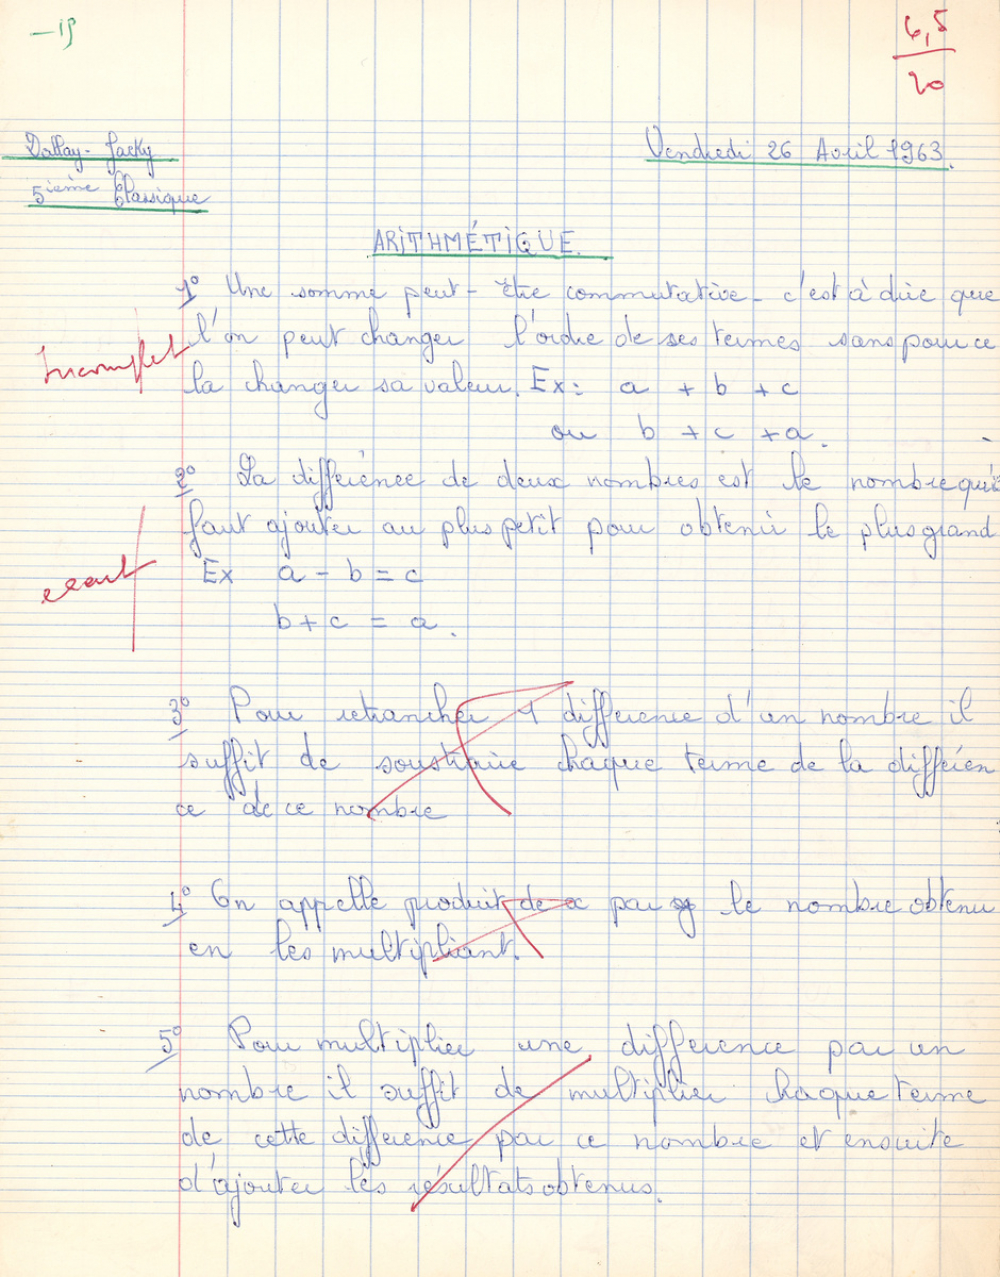 -19
6,5
20
Dallay-Jacky
Vendredi 26 Avril 1963.
5ième Classique
ARITHMÉTIQUE.
1° Une somme peut-être commutative - c'est à dire que
l'on peut changer l'ordre de ses termes sans pour ce
Incomplet
la changer sa valeur. Ex: a + b + c
ou b + c + a.
2° La différence de deux nombres est le nombre qu'il
faut ajouter au plus petit pour obtenir le plus grand
exact
Ex a - b = c
b + c = a.
3° Pour retrancher 1 différence d'un nombre il
suffit de soustraire chaque terme de la différen
ce de ce nombre
4° On appelle produit de a par le nombre obtenu
en les multipliant.
5° Pour multiplier une différence par un
nombre il suffit de multiplier chaque terme
de cette différence par ce nombre et ensuite
d'ajouter les résultats obtenus.